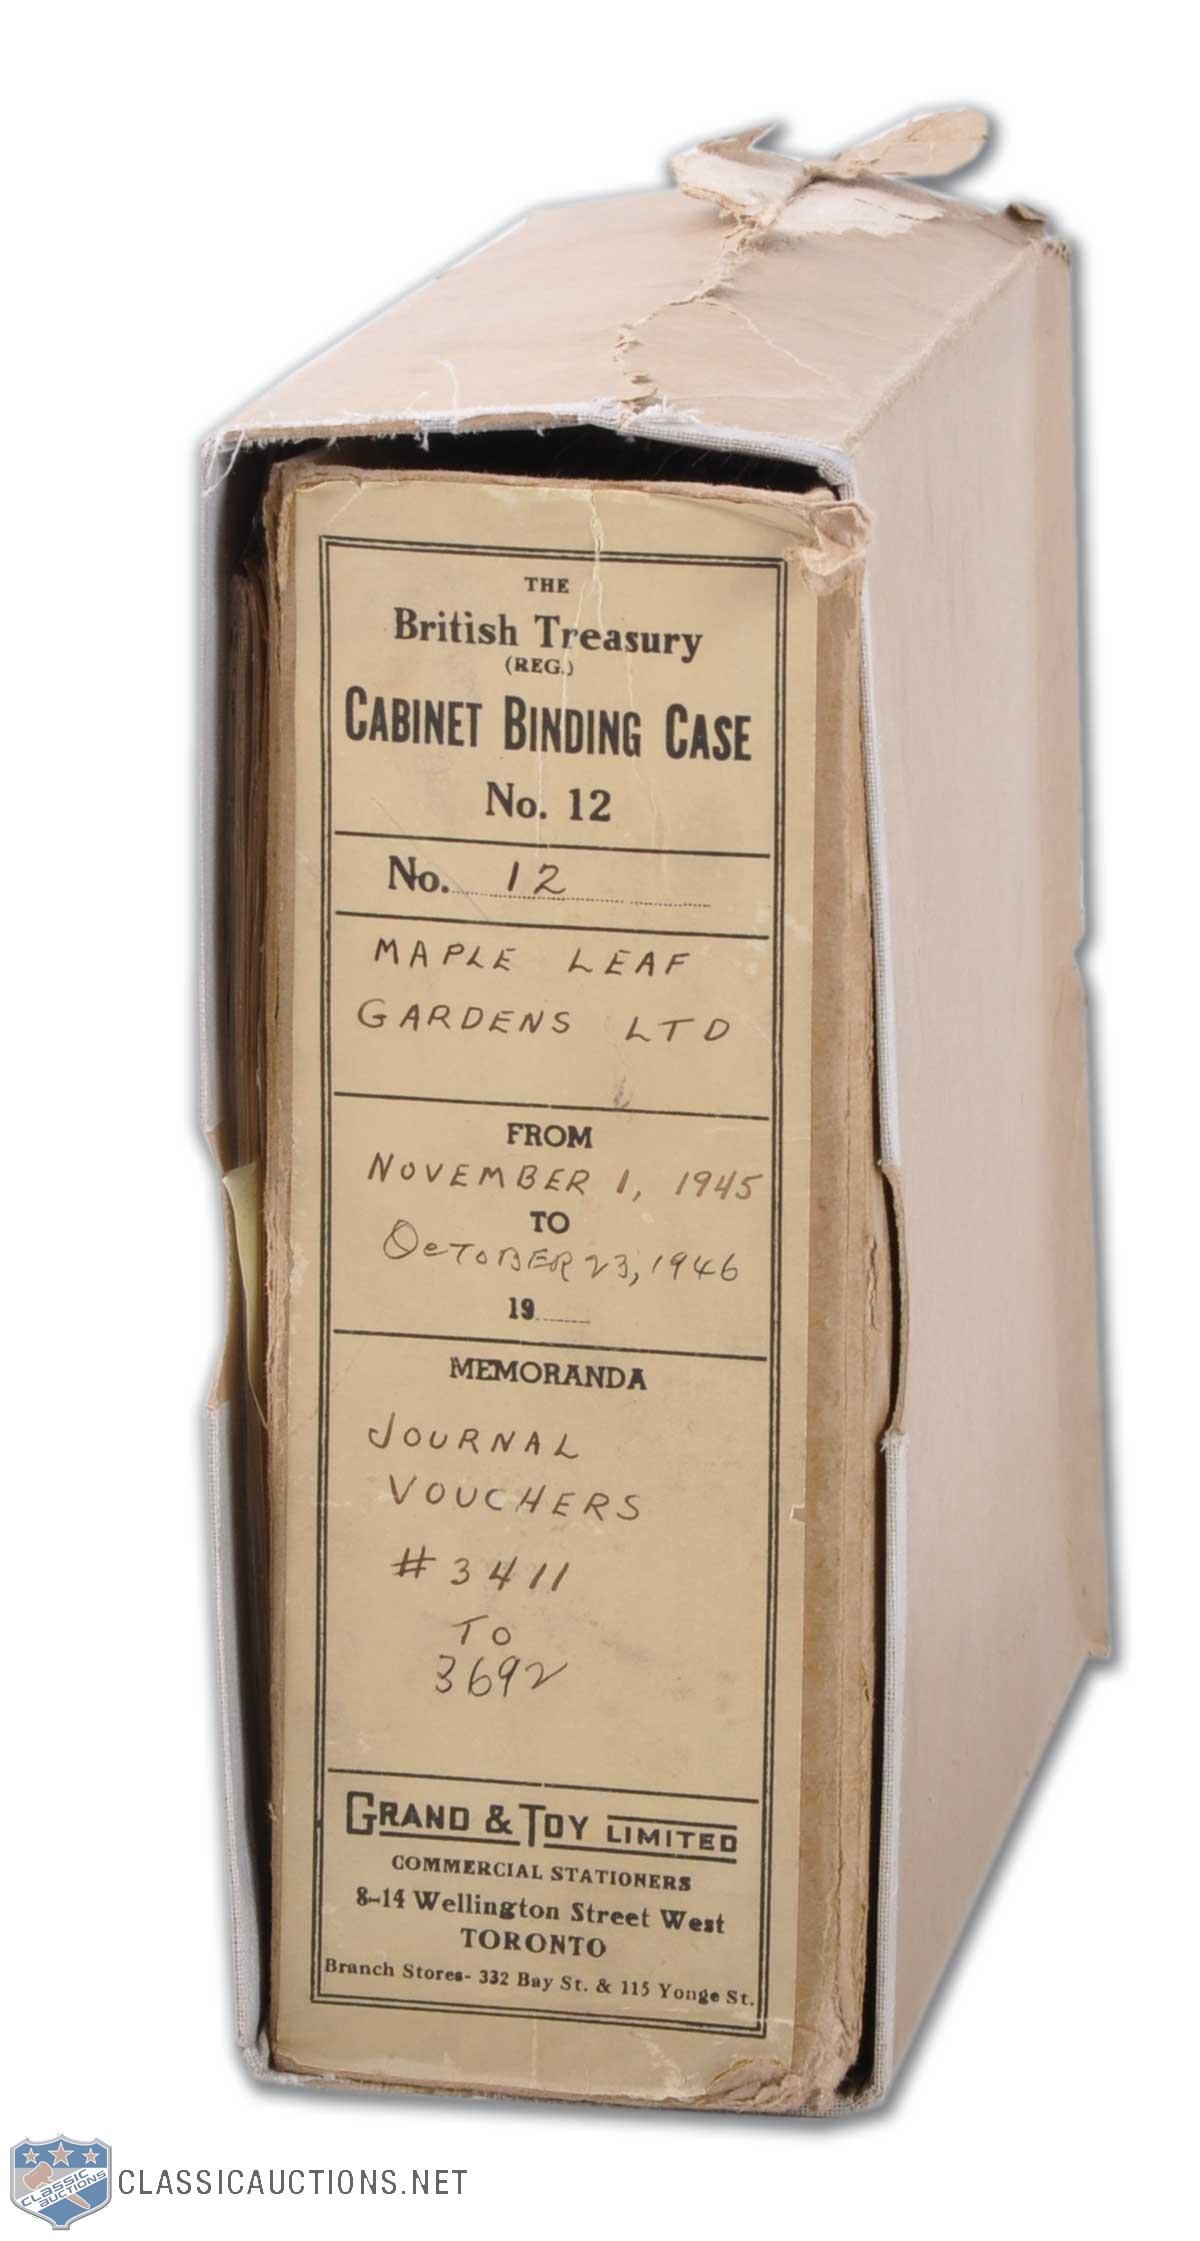 THE
British Treasury
(REG.)
CABINET BINDING CASE
No. 12
No. 12
MAPLE LEAF
GARDENS LTD
FROM
NOVEMBER 1, 1945
TO
OCTOBER 23, 1946
19
MEMORANDA
JOURNAL
VOUCHERS
#3411
TO
3692
GRAND & TOY LIMITED
COMMERCIAL STATIONERS
8-14 Wellington Street West
TORONTO
Branch Stores- 332 Bay St. & 115 Yonge St.
CLASSIC
AUCTIONS
CLASSICAUCTIONS.NET